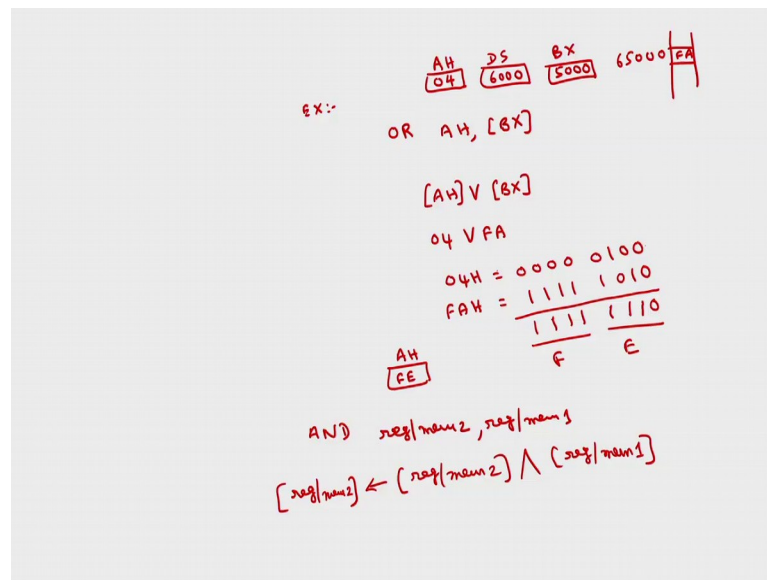 AH DS BX
04 6000 5000 65000 FA
EX:-
OR AH, [BX]
[AH] V [BX]
04 V FA
04H = 0000 0100
FAH = 1111 1010
1111 1110
F E
AH
FE
AND reg/mem2, reg/mem1
[reg/mem2] ← [reg/mem2] ∧ [reg/mem1]